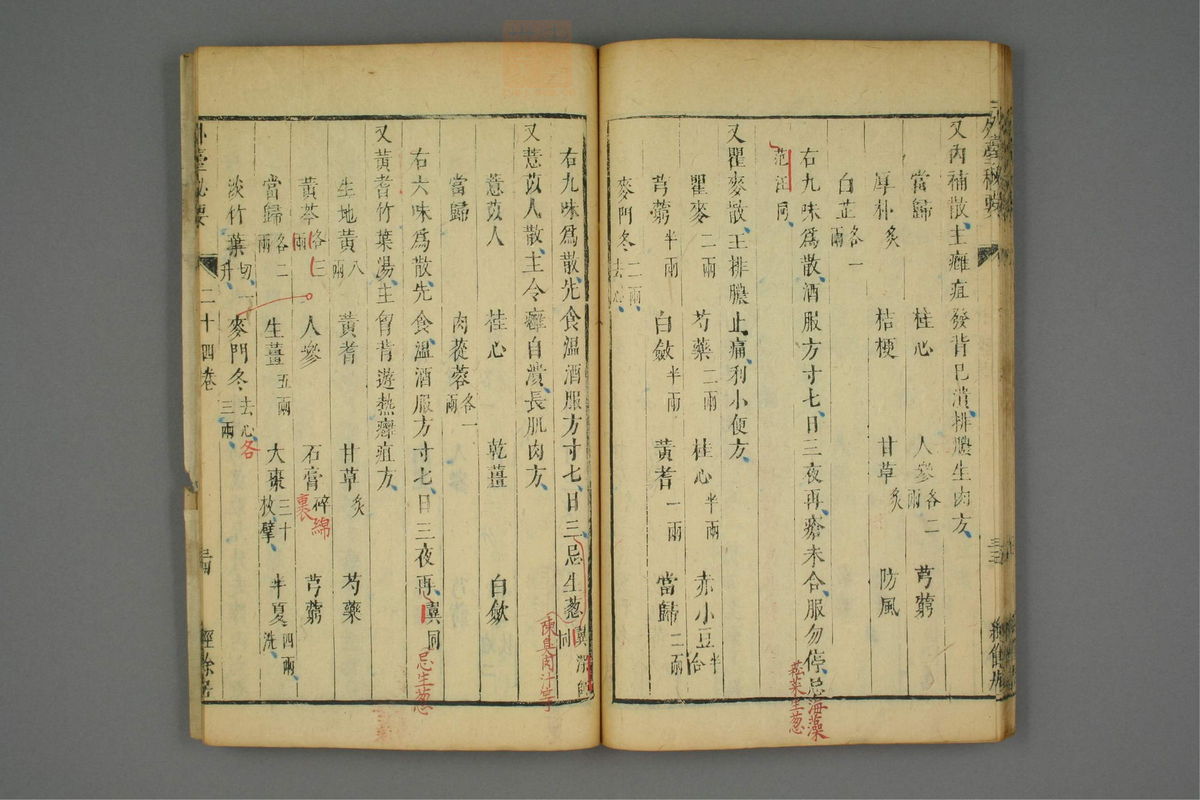 外臺祕要
又內補散主癰疽發背已潰排膿生肉方
當歸 桂心 人參各二兩 芎藭
厚朴炙 桔梗 甘草炙 防風
白芷各一兩
右九味爲散酒服方寸匕日三夜再瘡未合服勿停忌海藻
菘菜生葱
范汪同
又瞿麥散主排膿止痛利小便方
瞿麥二兩 芍藥二兩 桂心半兩 赤小豆半合
芎藭半兩 白蘞半兩 黃耆一兩 當歸二兩
麥門冬二兩去心
右九味爲散先食溫酒服方寸匕日三忌生葱
陳臭肉汁等
又薏苡人散主令癰自潰長肌肉方
薏苡人 桂心 乾薑 白蘞
當歸 肉蓯蓉各一兩
右六味爲散先食溫酒服方寸匕日三夜再
忌生葱
又黃耆竹葉湯主胷背遊熱癰疽方
生地黃八兩 黃耆 甘草炙 芍藥
黃芩各三兩 人參 石膏碎綿裹 芎藭
當歸各二兩 生薑五兩 大棗三十枚擘 半夏四兩洗
淡竹葉切一升 麥門冬去心各三兩
外臺祕要 二十四卷 經餘居